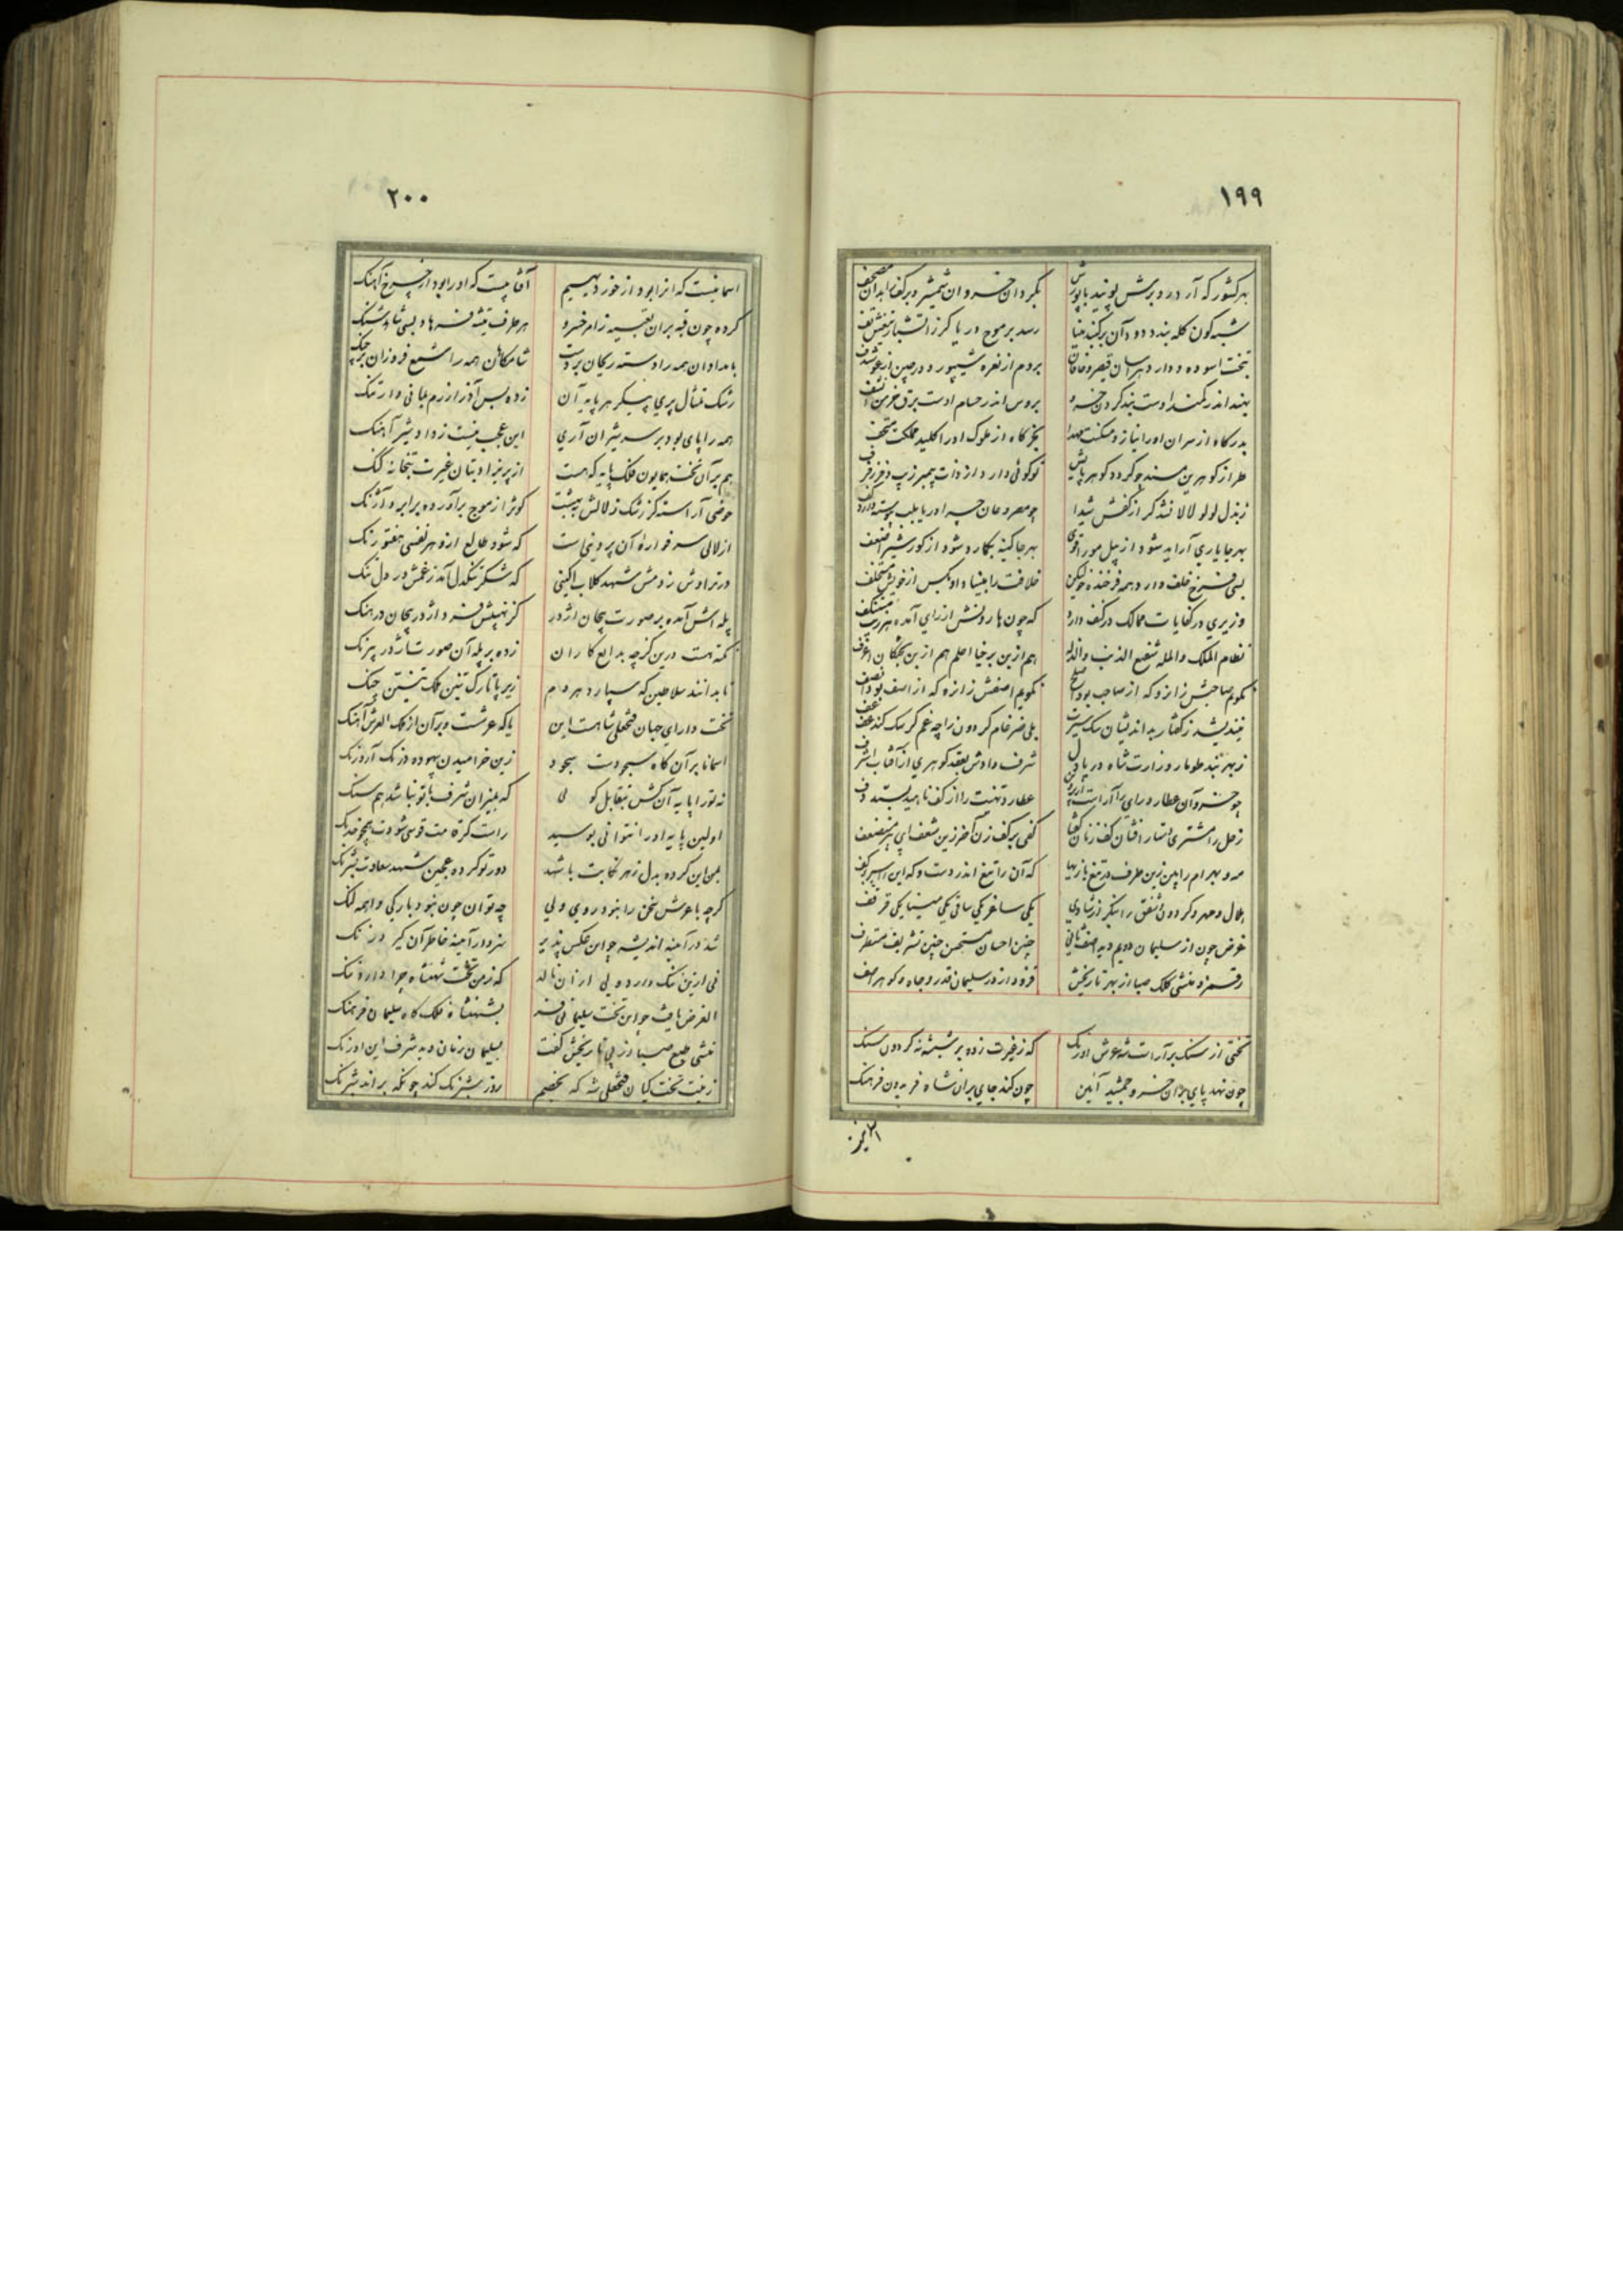 ۱۹۹
بهر کشور که آرد رو برش پویند با پوزش بگردان خسروان شمشیر و بر کف زاهدان مصحف
شبه گون کله بندد دود آن بر گنبد مینا رسد بر موج دریا گرز آتشبار تیغش تف
بتخت آسوده و دارد هراسان قیصر و خاقان بروم از نعره شیپور و در چین از غو شندف
بهند اندر کمند اوست بند گردن خسرو بروس اندر حسام اوست برق خرمن
بدرگاه از سران او را نیاز و مسکنت مهدا بخرگاه از ملوک او را کلید مملکت متحف
طراز گوهرین مسند چو گردد گوهر پاکش تو گوئی دارد از ذات پیمبر زیب و فر رفرف
ز بذل لولو لالا نشد گر از کفش شیدا چو مصروعان چرا دریا بلب پیوسته دارد کف
بهر جا یاری آراید شود از پیل مور اقوی بهر جا کینه بگمارد شود از گور شیر اضعف
بسی فرخ خلف دارد همه فرخنده خو لیکن خلافت را مبیناد او بکس از خویش مستخلف
وزیری در کفایات ممالک در کف دارد که چون هارونش از رای آمده
نظام الملک والمله شفیع الذنب والذله هم از بن برخیا اعلم هم از بن بختکان اعرف
نگویم صاحبش زانرو که از صاحب بود اصلح نگویم آصفش زانره که از آصف بود انصف
نیندیشد ز گفتار بداندیشان سگ سیرت بلی ضرغام گردون را چه غم گر سگ کند عف عف
ز بهر بند طومار وزارت شاه دریا دل شرف دادش بعقد گوهری از آفتاب اشرف
چو خسرو آن عطارد رای را آراست عطارد تهنیت را از کف ناهید بستد دف
زحل را مشتری دستار افشان کف زنان گفتا کفی بر کف زن
مه و بهرام را بین زین طرف در تیغ بازیها که آن را تیغ اندر دست و که این را سپر بر کف
هلال و مهر و گردون و شفق را بنگر از شادی یکی ساغر یکی ساقی یکی مینا یکی قرقف
غرض چون از سلیمان دویم دید آصف ثانی چنین احسان مستحسن چنین تشریف مستطرف
رقم زد منشی کلک صبا از بهر تاریخش فزود از در سلیمان قدر و جاه و گوهر آصف
تختی از سنگ برآراست شه عرش اورنگ که ز غیرت زده بر شیشه نه گردون سنگ
چون نهد پای بر آن خسرو جمشید آئین چون کند جای بر آن شاه فریدون فرهنگ
۲۰۰
آسمانیست که آنرا بود از خور دیهیم آفتابیست که او را بود از چرخ آهنگ
کرده چون قبه بر آن تعبیه زامر خسرو هر طرف تیشه فرهاد بسی شاد و شنگ
بامدادان همه را دسته ریحان بر دست شامگاهان همه را شمع فروزان بر چنگ
رشک تمثال پری پیکر هر پایه آن زده بس آذر آزرم بمانی و ارتنگ
همه را پای بود بر سر شیران آری این عجب نیست ز داد و شیر آهنگ
هم بر آن تخت همایون فلک پایه که هست از پریزاد بتان غیرت بتخانه گنگ
حوضی آراسته کز رشک زلالش ببهشت کوثر از موج برآورده بر ابرو آژنگ
از لآلی سر فواره آن پروینی است که شود طالع ازو هر نفسی هفتورنگ
در تراوش ز دمش شهد گلاب آگینی که شکر تنگدل آمد ز غمش در دل تنگ
پله اش آمده بر صورت پیچان اژدر کز نهیبش فسرد اژدر پیچان در هنگ
نکته هست درین گرچه بدایع کاران زده بر پله آن صورت اژدر پیرنگ
تا بدانند سلاطین که سپارد هر دم زیر پا تارک تنین فلک تنتن چنگ
تخت دارای جهان فتحعلی شاهست این یا که عرشست و بر آن از ملک العرش آهنگ
آسمانا بر آن گاه سجودت بیجود زین خرامیدن بیهوده درنگ آر درنگ
نه تو را پایه آن کش بتقابل کوبی که بمیزان شرف با تو نباشد هم سنگ
اولین پایه او را نتوانی بوسید راست گر قامت قوسی شودت همچو خدنگ
بس این کرده بدل زهر نحایت باشد دور تو کرده عجین شهد سعادت بشرنگ
گرچه با عرش سخن را نبود روی ولی چه توان چون نبود بارگی واهمه لنگ
شد در آئینه اندیشه چو این عکس پذیر سزد ار آینه خاطر آن گیرد زنگ
نی ازین ننگ ندارد ولی از آن نالد که ز من تخت شهنشاه چرا دارد ننگ
الغرض یافت چو این تخت سلیمانی فر بشهنشاه فلک گاه سلیمان فرهنگ
منشی طبع صبا از پی تاریخش گفت بسلیمان زمان دید شرف این اورنگ
زینت تخت کیان فتحعلی شه که بخصم روز شبرنگ کند چونکه براند شبرنگ